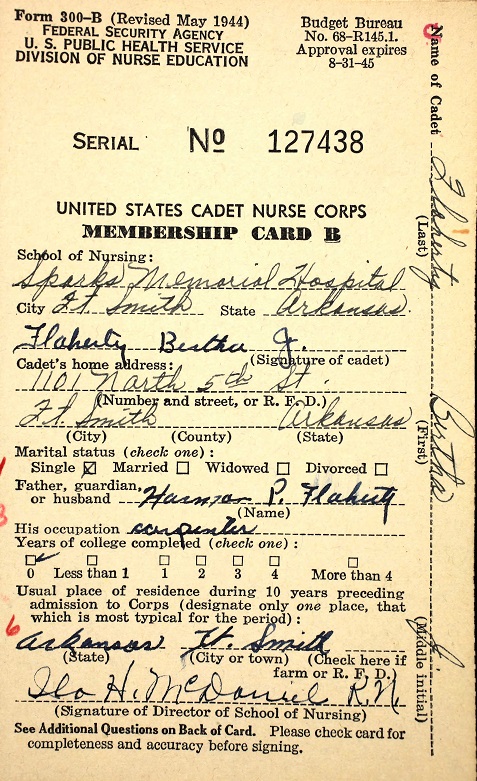 Form 300–B (Revised May 1944)
FEDERAL SECURITY AGENCY
U. S. PUBLIC HEALTH SERVICE
DIVISION OF NURSE EDUCATION
Budget Bureau
No. 68–R145.1.
Approval expires
8-31-45
SERIAL Nº 127438
UNITED STATES CADET NURSE CORPS
MEMBERSHIP CARD B
School of Nursing:
Sparks Memorial Hospital
City Ft Smith State Arkansas.
Flaherty Bertha J.
(Signature of cadet)
Cadet's home address:
1101 North 5th St.
(Number and street, or R. F. D.)
Ft. Smith Arkansas
(City) (County) (State)
Marital status (check one):
Single Married Widowed Divorced
Father, guardian,
or husband Harmon P. Flaherty
(Name)
His occupation carpenter
Years of college completed (check one):
0 Less than 1 1 2 3 4 More than 4
Usual place of residence during 10 years preceding
admission to Corps (designate only one place, that
which is most typical for the period):
6
Arkansas Ft. Smith
(State) (City or town) (Check here if
farm or R. F. D.)
Ila H. McDaniel RN
(Signature of Director of School of Nursing)
See Additional Questions on Back of Card. Please check card for
completeness and accuracy before signing.
Name of Cadet Flaherty Bertha J.
(Last) (First) (Middle initial)